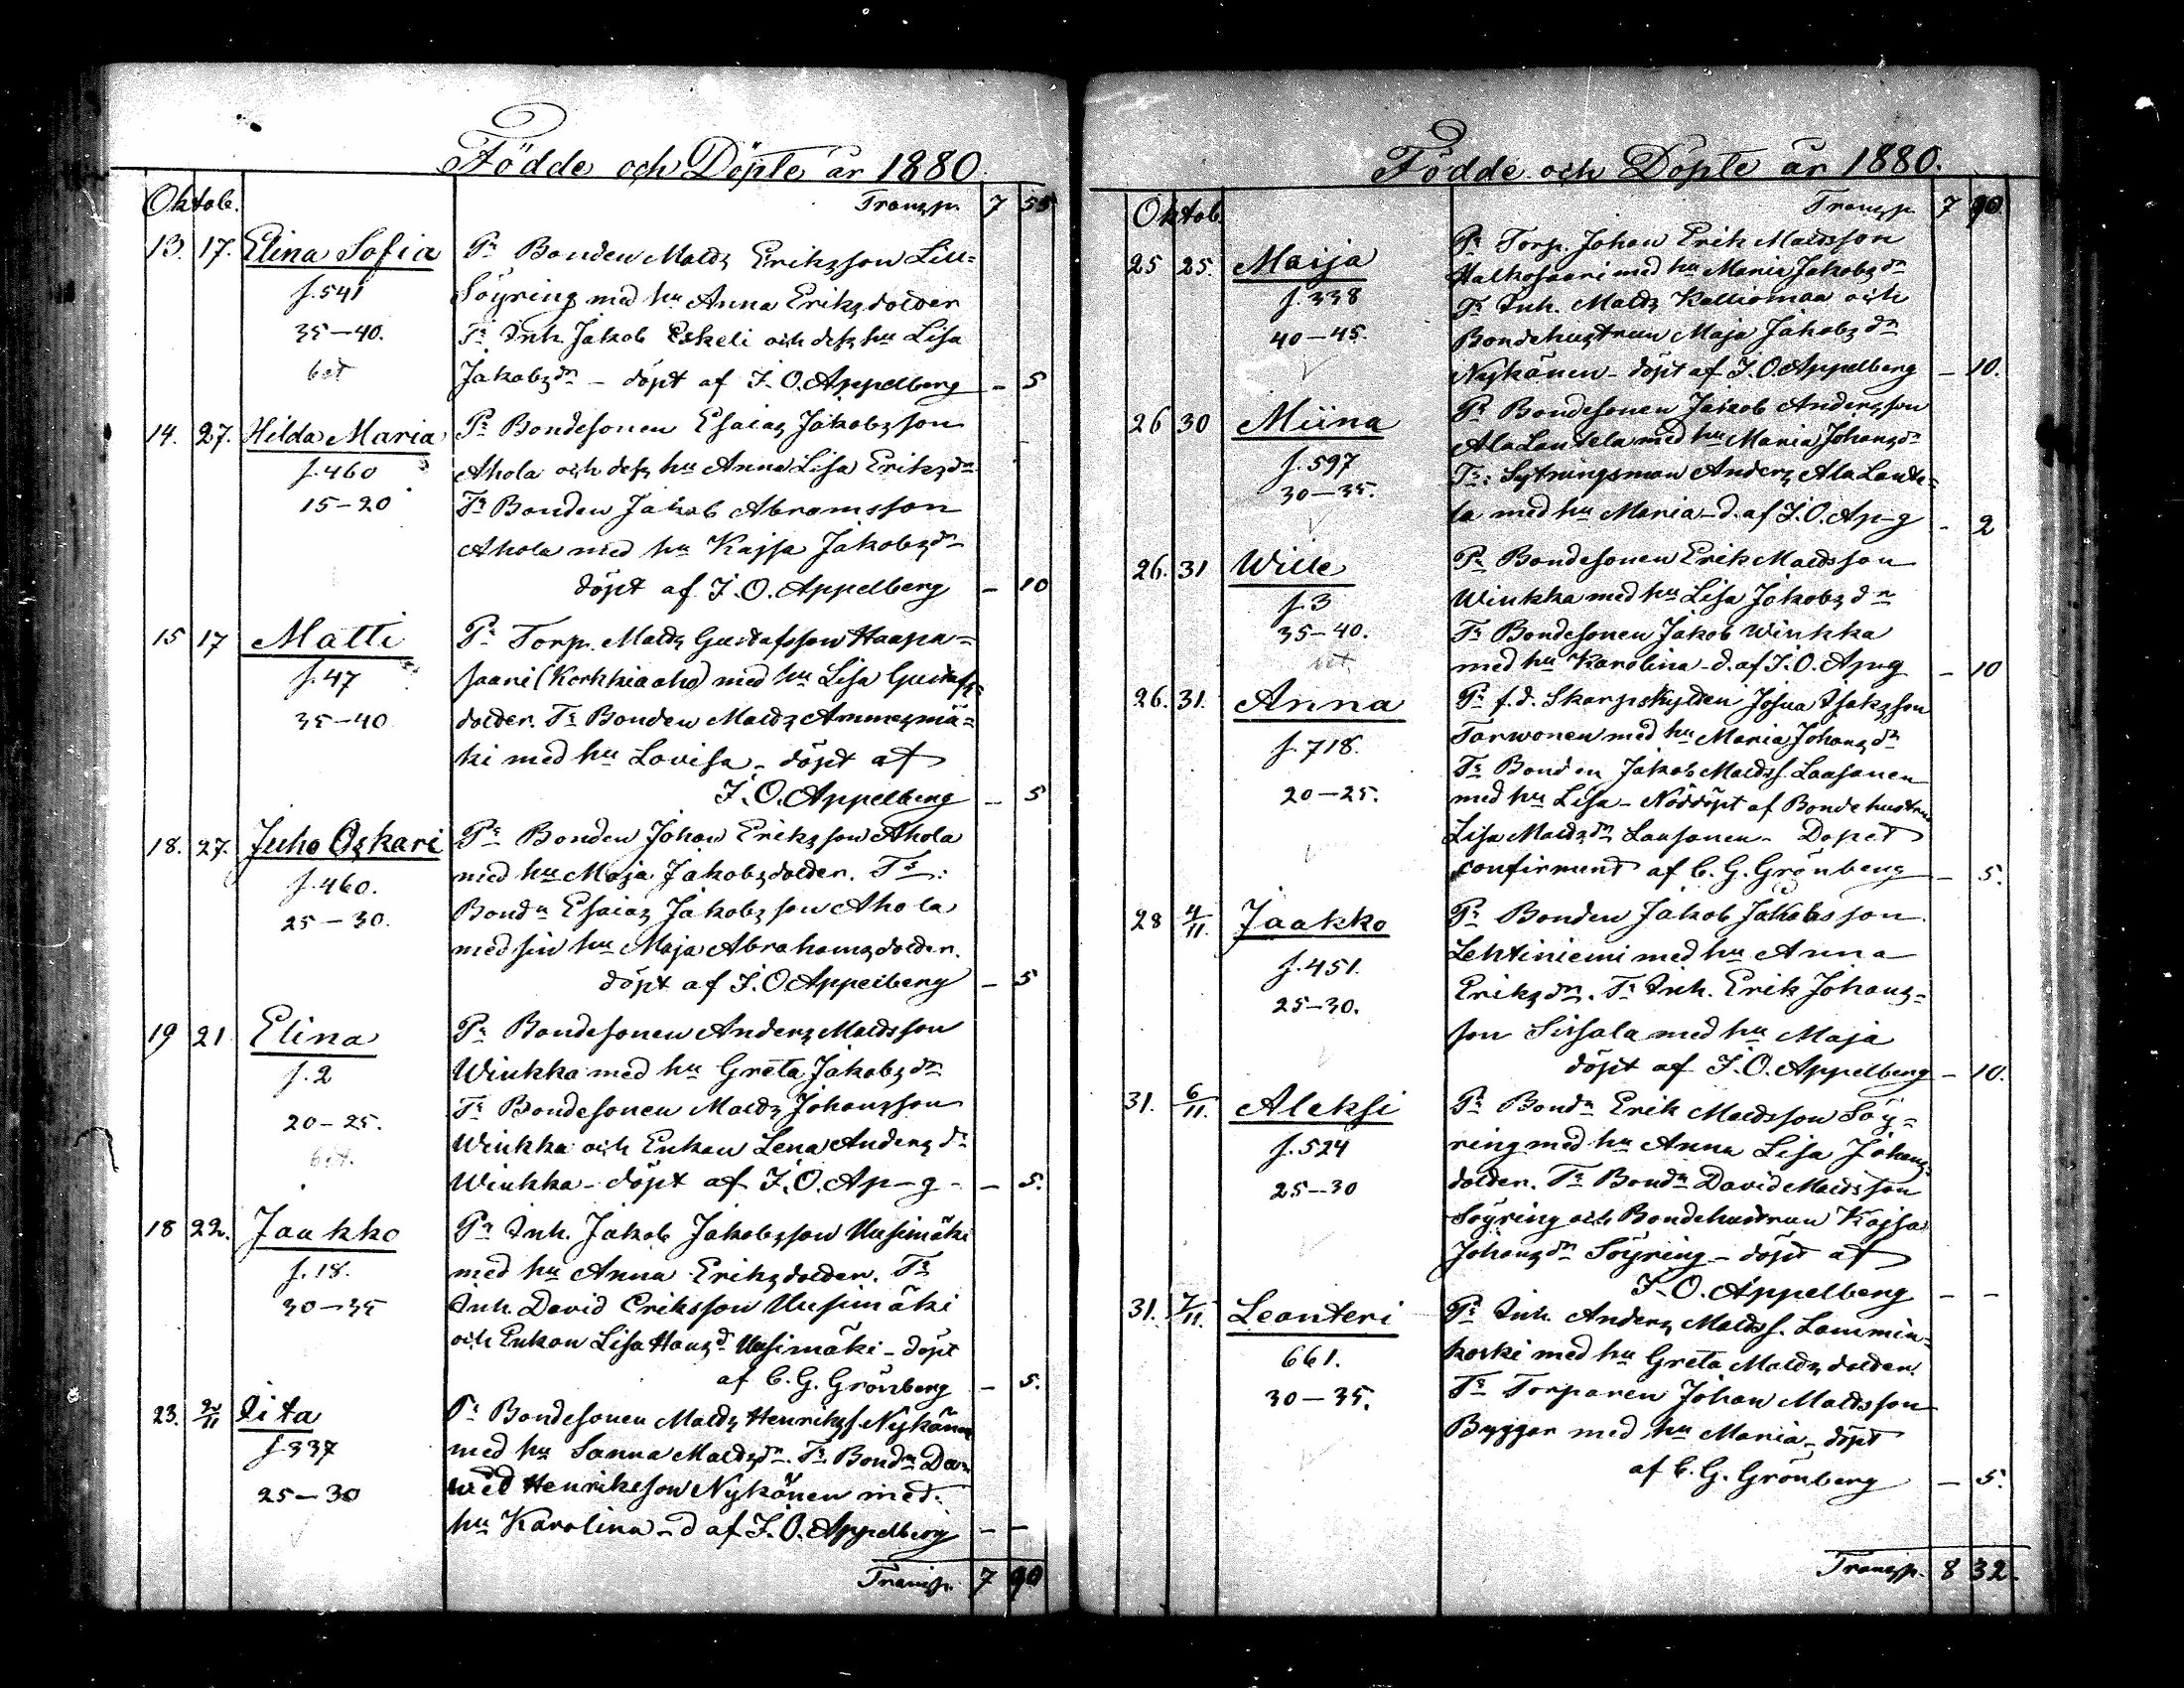 Födde och Döpte år 1880.
Oktob. Transp. 7 55
13. 17. Elina Sofia Pr Bonden Matts Eriksson Lill=
f. 541 Söyring med hu Anna Eriksdotter
35-40. Tr Inh. Jakob Eskeli och dess hu Lisa
bet Jakobsdr - döpt af J. O. Appelberg - 5
14. 27. Hilda Maria Pr Bondesonen Esaias Jakobsson
f. 460 Ahola och dess hu Anna Lisa Eriksdr
15-20 Tr Bonden Jakob Abramsson
Ahola med hu Kajsa Jakobsdr
döpt af J. O. Appelberg - 10
15 17 Matti Pr Torp. Matts Gustafsson Haapa=
f. 47 saari (Korkkiaaho) med hu Lisa Gustafs=
35-40 dotter. Tr Bonden Matts Ammesmä=
ki med hu Lovisa - döpt af
J. O. Appelberg - 5
18. 27. Juho Oskari Pr Bonden Johan Eriksson Ahola
f. 460. med hu Maja Jakobsdotter. Tr:
25-30. Bondn Esaias Jakobsson Ahola
med sin hu Maja Abrahamsdotter.
döpt af J. O Appelberg - 5
19 21 Elina Pr Bondesonen Anders Mattsson
f. 2 Winkka med hu Greta Jakobsdr
20-25. Tr Bondesonen Matts Johansson
bet. Winkka och Enkan Lena Andersdr
Winkka - döpt af J. O. Ap-g - - 5.
18 22. Jaakko Pr Inh. Jakob Jakobsson Uusimäki
f. 18. med hu Anna Eriksdotter. Tr
30-35 Inh. David Eriksson Uusimäki
och Enkan Lisa Hansd Uusimäki - döpt
af C. G. Grönberg - 5.
23. 2/11 Iita Pr Bondesonen Matts Henrikss Nykänen
f. 337 med hu Sanna Mattsdr. Tr. Bondn Da=
25-30 wid Henriksson Nykänen med
hu Karolina - d af J. O. Appelberg - -
Transp. 7 90
Födde och Döpte år 1880.
Oktob. Transp. 7 90
25 25. Maija Pr Torp. Johan Erik Mattsson
f. 338 Halkosaari med hu Maria Jakobsdr
40-45. Tr Inh. Matts Kalliomaa och
Bondehustrun Maja Jakobsdr
Nykänen - döpt af J. O. Appelberg - 10.
26 30 Miina Pr Bondesonen Jakob Andersson
f. 597 AlaLantela med hu Maria Johansdr
30-35. Tr: Sytningsman Anders AlaLante=
la med hu Maria - d. af J. O. Ap-g - 2
26. 31 Wille Pr Bondesonen Erik Mattsson
f. 3 Winkka med hu Lisa Jakobsdr
35-40. Tr Bondesonen Jakob Winkka
bet med hu Karolina - d. af J. O. Ap-g - 10
26. 31. Anna Pr f. d. Skarpskytten Josua Isaksson
f. 718. Tarwonen med hu Maria Johansdr
20-25. Tr Bonden Jakob Mattss. Laasanen
med hu Lisa - Nöddöpt af Bondehustru
Lisa Mattsdr Laasanen - Dopet
confirmerat af C. G. Grönberg - 5.
28 4/11. Jaakko Pr Bonden Jakob Jakobsson
f. 451. Lehtiniemi med hu Anna
25-30. Eriksdr. Tr Inh. Erik Johans=
son Sissala med hu Maja
döpt af J. O. Appelberg - 10.
31. 6/11. Aleksi Pr Bondn Erik Mattsson Söy=
f. 524 ring med hu Anna Lisa Johans=
25-30 dotter. Tr Bondn David Mattsson
Söyring och Bondehustrun Kajsa
Johansdr Söyring - döpt af
J. O. Appelberg - -
31. 7/11. Leanteri Pr Inh. Anders Mattss. Lammin=
661. koski med hu Greta Mattsdotter.
30-35. Tr Torparen Johan Mattsson
Byggar med hu Maria - döpt
af C. G. Grönberg - 5.
Transp. 8 32.